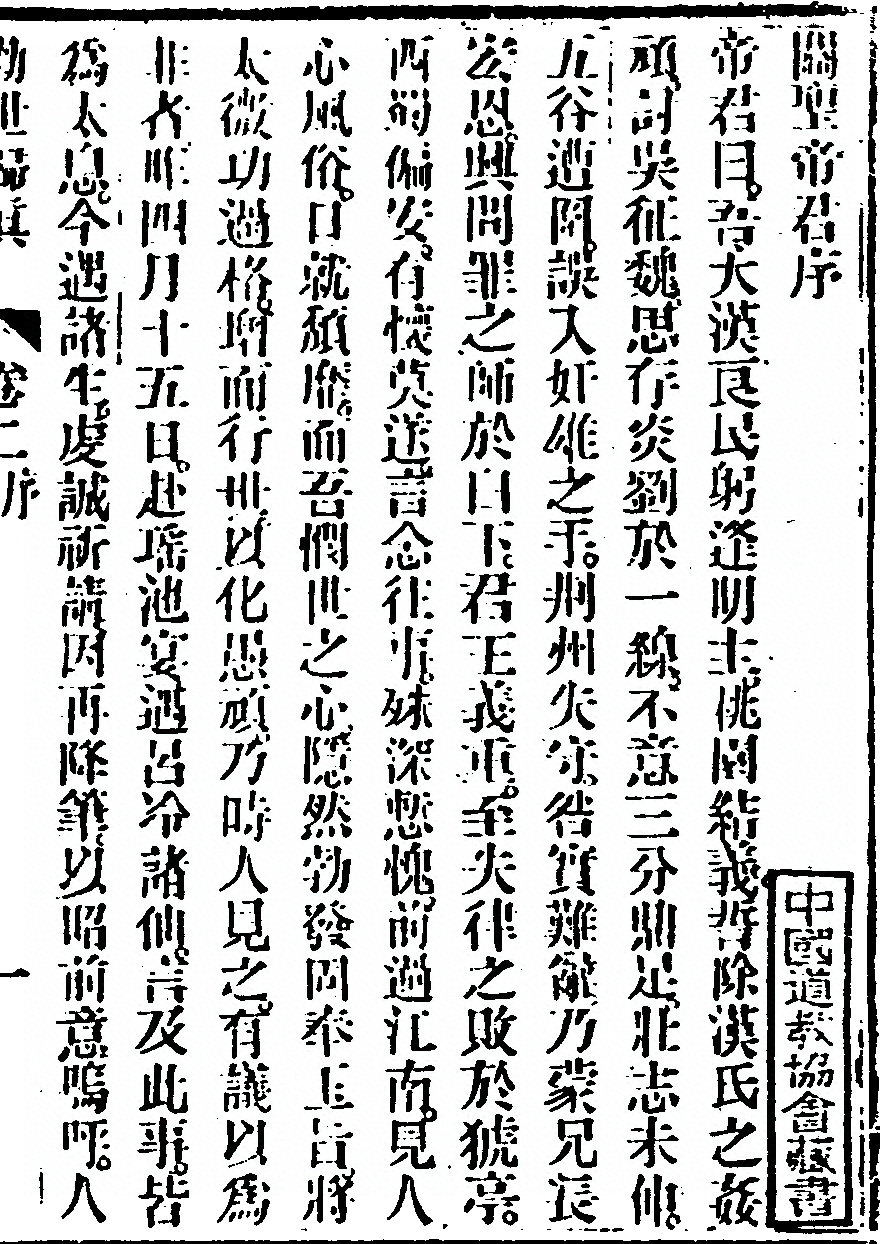 關聖帝君序
帝君曰。吾大漢良民。躬逢明主。桃園結義。誓除漢氏之姦
頑。討吳征魏。思存炎劉於一線。不意三分鼎足。壯志未伸。
五谷遭閉。誤入奸雄之手。荆州失守。咎實難辭。乃蒙兄長
宏恩。興問罪之師於白下。君王義重。至失律之敗於猇亭。
西蜀偏安。有懷莫遂。言念往事。殊深慙愧。前過江南。見人
心風俗。日就頹靡。而吾憫世之心。隱然勃發。因奉玉旨。將
太微功過格。增而行世。以化愚頑。乃時人見之。有議以爲
非者。昨四月十五日。赴瑤池宴。遇呂冷諸仙。言及此事。皆
爲太息。今遇諸生。虔誠祈請。因再降筆。以昭前意。嗚呼。人
勅世歸眞 卷二序 一
中國道教協會藏書